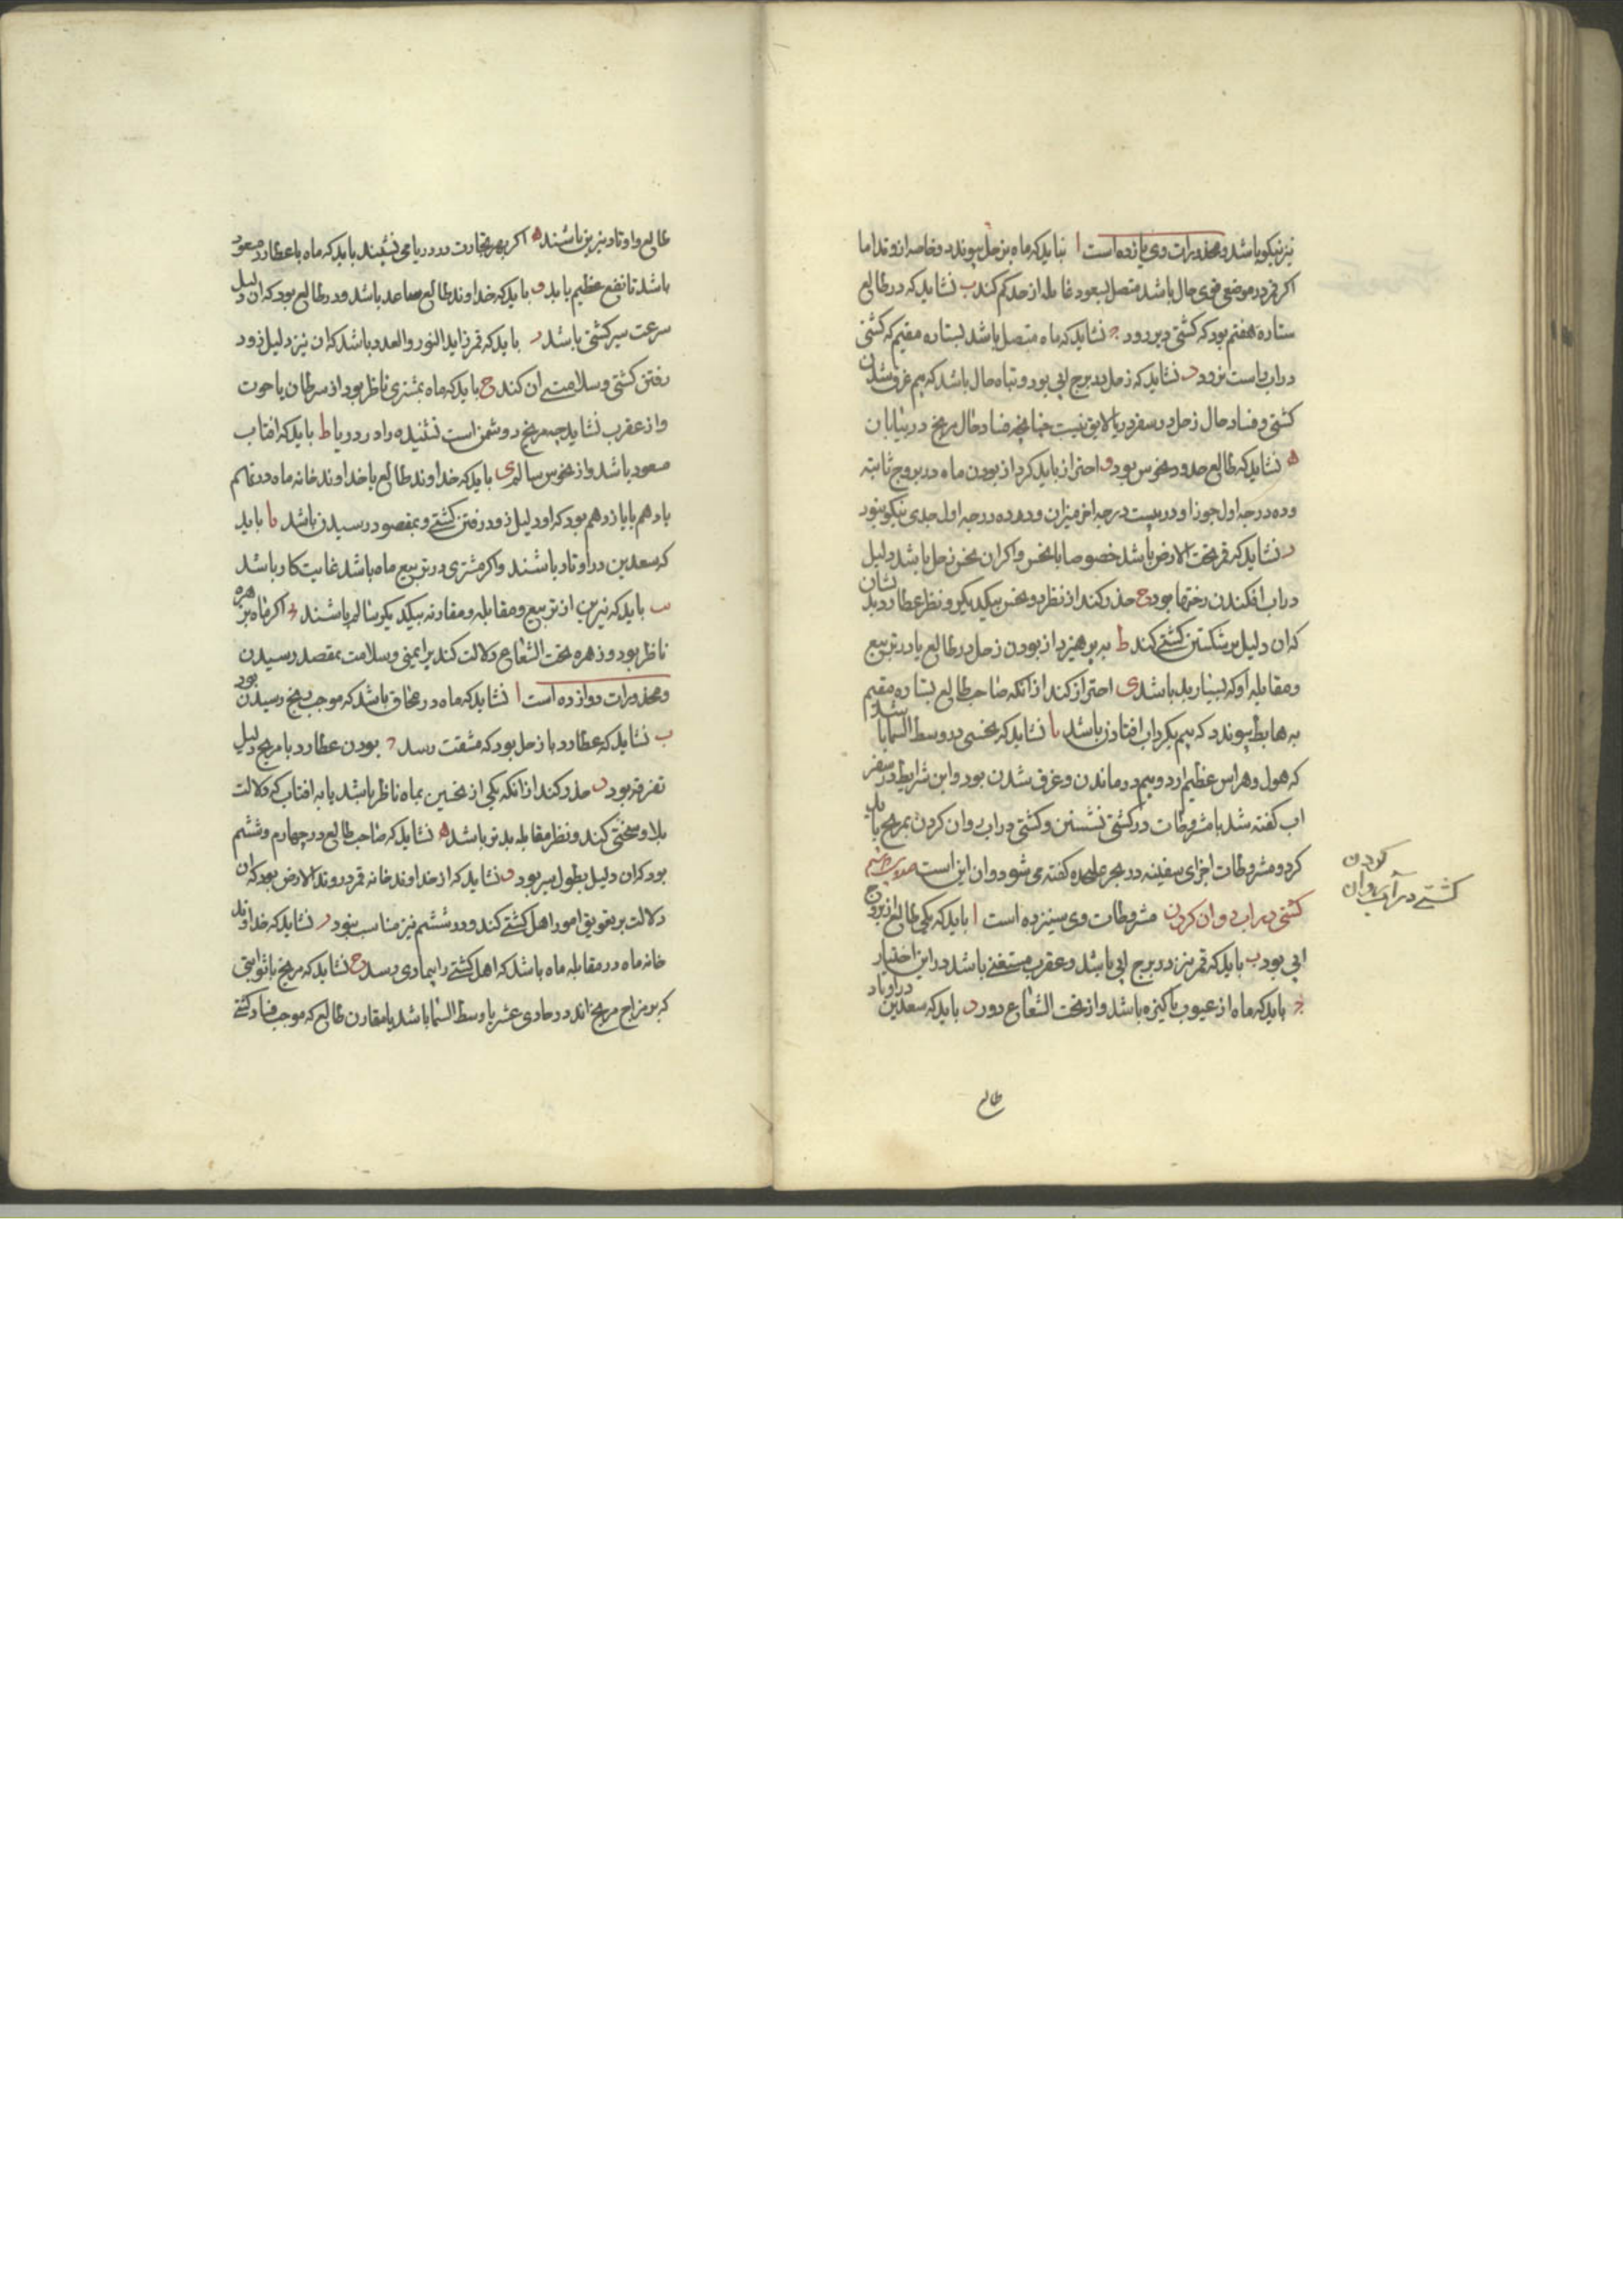 نیز نیکو باشد و محذورات وی یازده است ا نباید که ماه بزحل پیوندد و خاصه از وتد اما
اکر قمر در موضعی قوی حال باشد متصل بسعود غایله از حد کم کند ب نشاید که در طالع
ستاره هفتم بود که کشتی دیر رود ج نشاید که ماه متصل باشد بستاره مقیم که کشتی
در اب راست نرود د نشاید که زحل در برج ابی بود و تباه حال باشد که بیم غرق شدن
کشتی و فساد حال زحل در سفر دریا لایق نیست چنانچه فساد حال مریخ در بیابان
ه نشاید که طالع حدود نحوس بود و احتراز باید کرد از بودن ماه در بروج ثابته
و ده درجه اول جوزا و در بیست درجه اخر میزان و در ده درجه اول جدی نیکو نبود
ز نشاید که قمر تحت الارض باشد خصوصا با نحس و اکر ان نحس زحل باشد دلیل
در اب افکندن رختها بود ح حذر کند از نظر دو نحس بیکدیکر و نظر عطارد بدنشان
که ان دلیل بر شکستن کشتی کند ط بپرهیزد از بودن زحل در طالع یا در تربیع
و مقابله او که بسیار بد باشد ی احتراز کند از انکه صاحب طالع بستاره مقیم
به هابط پیوندد که بیم بکرداب افتادن باشد یا نشاید که نحسی در وسط السما باشد
که هول و هراس عظیم ارد و بیم در ماندن و غرق شدن بود و این شرایط در سفر
اب کفته شد با مشروطات در کشتی نشستن و کشتی در اب روان کردن بمریخ باید
کرد و مشروطات اجزای سفینه در بحر علیحده کفته می شود و ان این است
کشتی در اب روان کردن مشروطات وی سیزده است ا باید که یکی طالع از بروج
ابی بود ب باید که قمر نیز در برج ابی باشد و عقرب مستغنی باشد در این اختیار
ج باید که ماه از عیوب پاکیزه باشد و از تحت الشعاع دور د باید که سعدین در اوتاد
طالع
کردن
کشتی در آب روان
طالع و اوتاد نیرین باشند ه اکر بهر تجارت در دریا می نشیند باید که ماه با عطارد مسعود
باشد تا نفع عظیم یابد و باید که خداوند طالع صاعد باشد و در طالع بود که ان دلیل
سرعت سیر کشتی باشد ز باید که قمر زاید النور و العدد باشد که ان نیز دلیل زود
رفتن کشتی و سلامتی ان کند ح باید که ماه بمشتری ناظر بود از سرطان یا حوت
و از عقرب نشاید چه مریخ دشمن است نشیننده را در دریا ط باید که افتاب
مسعود باشد و از نحوس سالم ی باید که خداوند طالع با خداوند خانه ماه در نهم
یا دهم یا یازدهم بود که او دلیل زود رفتن کشتی و بمقصود رسیدن باشد یا باید
که سعدین در اوتاد باشند و اکر مشتری در تربیع ماه باشد غایت کار باشد
یب باید که نیرین از تربیع و مقابله و مقارنه بیکدیکر سالم باشند یج اکر ماه بزهره
ناظر بود و زهره تحت الشعاع دلالت کند بر ایمنی و سلامت بمقصد رسیدن
و محذورات دوازده است ا نشاید که ماه در محاق باشد که موجب رنج رسیدن بود
ب نشاید که عطارد با زحل بود که مشقت رسد ج بودن عطارد با مریخ دلیل
تفرقه بود د حذر کند از انکه یکی از نحسین بماه ناظر باشد یا به افتاب که دلالت
بلا و سختی کند و نظر مقابله بدتر باشد ه نشاید که صاحب طالع در چهارم و ششم
بود که ان دلیل بطول سیر بود و نشاید که از خداوند خانه قمر در وتد الارض بود که ان
دلالت بر تعویق امور اهل کشتی کند و در ششم نیز مناسب نبود ز نشاید که خداوند
خانه ماه در مقابله ماه باشد که اهل کشتی را بیماری رسد ح نشاید که مریخ با ثوابتی
که بر مزاج مریخ اند در حادی عشر یا وسط السما باشد یا مقارن طالع که موجب فساد کشتی